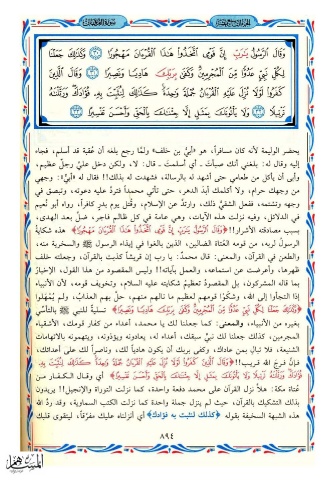 وَقَالَ الرَّسُولُ يَٰرَبِّ إِنَّ قَوْمِى ٱتَّخَذُوا۟ هَٰذَا ٱلْقُرْءَانَ مَهْجُورًا ٣٠ وَكَذَٰلِكَ جَعَلْنَا
لِكُلِّ نَبِىٍّ عَدُوًّا مِّنَ ٱلْمُجْرِمِينَ وَكَفَىٰ بِرَبِّكَ هَادِيًا وَنَصِيرًا ٣١ وَقَالَ ٱلَّذِينَ
كَفَرُوا۟ لَوْلَا نُزِّلَ عَلَيْهِ ٱلْقُرْءَانُ جُمْلَةً وَٰحِدَةً كَذَٰلِكَ لِنُثَبِّتَ بِهِۦ فُؤَادَكَ وَرَتَّلْنَٰهُ
تَرْتِيلًا ٣٢ وَلَا يَأْتُونَكَ بِمَثَلٍ إِلَّا جِئْنَٰكَ بِٱلْحَقِّ وَأَحْسَنَ تَفْسِيرًا ٣٣
يحضر الوليمة لأنه كان مسافراً، هو «أبيُّ بن خلف» ولمَّا رجع بلغه أن عُقبة قد أسلم، فجاء
إليه وقال له: بلغني أنك صبأتَ ـ أي أسلمتَ ـ قال: لا، ولكن دخل عليَّ رجلٌ عظيم،
وأبى أن يأكل من طعامي حتى أشهد له بالرسالة، فشهدت له بذلك!! فقال له «أبيٌّ»: وجهي
من وجهك حرام، ولا أكلمك أبد الدهر، حتى تأتي محمداً فتردَّ عليه دعوته، وتبصق في
وجهه وتشتمه، ففعل الشقيُّ ذلك، وارتدَّ عن الإسلام، وقُتل يوم بدرٍ كافراً، رواه أبو نُعيم
في الدلائل، وفيه نزلت هذه الآيات، وهي عامة في كل ظالم فاجر، ضلَّ بعد الهدى،
بسبب مصادقته الأشرار!! ﴿وَقَالَ الرَّسُولُ يَٰرَبِّ إِنَّ قَوْمِى ٱتَّخَذُوا۟ هَٰذَا ٱلْقُرْءَانَ مَهْجُورًا﴾ هذه شكاية
الرسول لربه، من قومه العُتاة الضالين، الذين بالغوا في إيذاء الرسول ﷺ والسخرية منه،
والطعن في القرآن، والمعنى: قال محمدٌ: يا رب إن قريشاً كذبت بالقرآن، وجعلته خلف
ظهرها، وأعرضت عن استماعه، والعمل بآياته!! وليس المقصود من هذا القول، الإخبارُ
بما قاله المشركون، بل المقصودُ تعظيمُ شكايته عليه السلام، وتخويف قومه، لأن الأنبياء
إذا التجأوا إلى الله، وشكَوْا قومهم لعظيم ما نالهم منهم، حلَّ بهم العذاب، ولم يُمْهلوا
﴿وَكَذَٰلِكَ جَعَلْنَا لِكُلِّ نَبِىٍّ عَدُوًّا مِّنَ ٱلْمُجْرِمِينَ وَكَفَىٰ بِرَبِّكَ هَادِيًا وَنَصِيرًا﴾ تسليةٌ للنبي ﷺ بالتأسِّي
بغيره من الأنبياء، والمعنى: كما جعلنا لك يا محمد، أعداء من كفار قومك، الأشقياء
المجرمين، كذلك جعلنا لكل نبيٍّ سبقك، أعداء له، يعادونه ويؤذونه، ويتهمونه بالاتهامات
الشنيعة، فلا تبال بمن عاداك، وكفى بربك أن يكون هادياً لك، وناصراً لك على أعدائك،
فإنَّ فرجَ الله قريب!! ﴿وَقَالَ ٱلَّذِينَ كَفَرُوا۟ لَوْلَا نُزِّلَ عَلَيْهِ ٱلْقُرْءَانُ جُمْلَةً وَٰحِدَةً كَذَٰلِكَ لِنُثَبِّتَ بِهِۦ
فُؤَادَكَ وَرَتَّلْنَٰهُ تَرْتِيلًا. وَلَا يَأْتُونَكَ بِمَثَلٍ إِلَّا جِئْنَٰكَ بِٱلْحَقِّ وَأَحْسَنَ تَفْسِيرًا﴾ أي وقال الكفار من
عُتاة مكة: هلاَّ نزل القرآن على محمد دفعة واحدة، كما نزلت التوراة والإنجيل!! يريدون
بذلك التشكيك بالقرآن، حيث لم ينزل جملة واحدة كما نزلت الكتب السماوية، وقد ردَّ الله
هذه الشبهة السخيفة بقوله ﴿كذلك لنثبت به فؤادك﴾ أي أنزلناه عليك مفرَّقاً، ليتقوى قلبك
٨٩٤